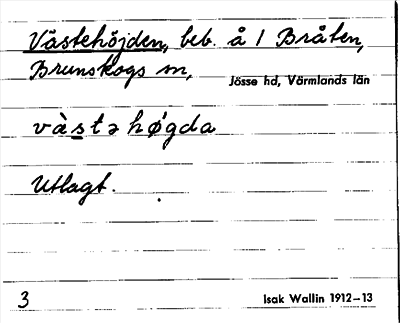 Västehöjden, beb. å 1 Bråten,
Brunskogs sn,
Jösse hd, Värmlands län
và̀stə hǿgda
Utlagt.
3
Isak Wallin 1912–13